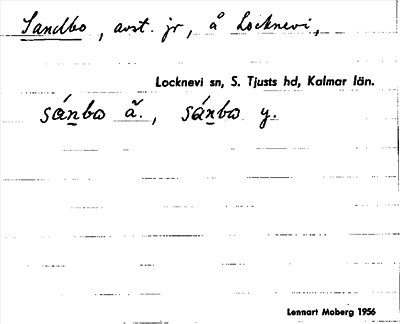 Sandbo, avst. jr, å Locknevi,
Locknevi sn, S. Tjusts hd, Kalmar län.
sánbω ä̃., sánbω y.
Lennart Moberg 1956